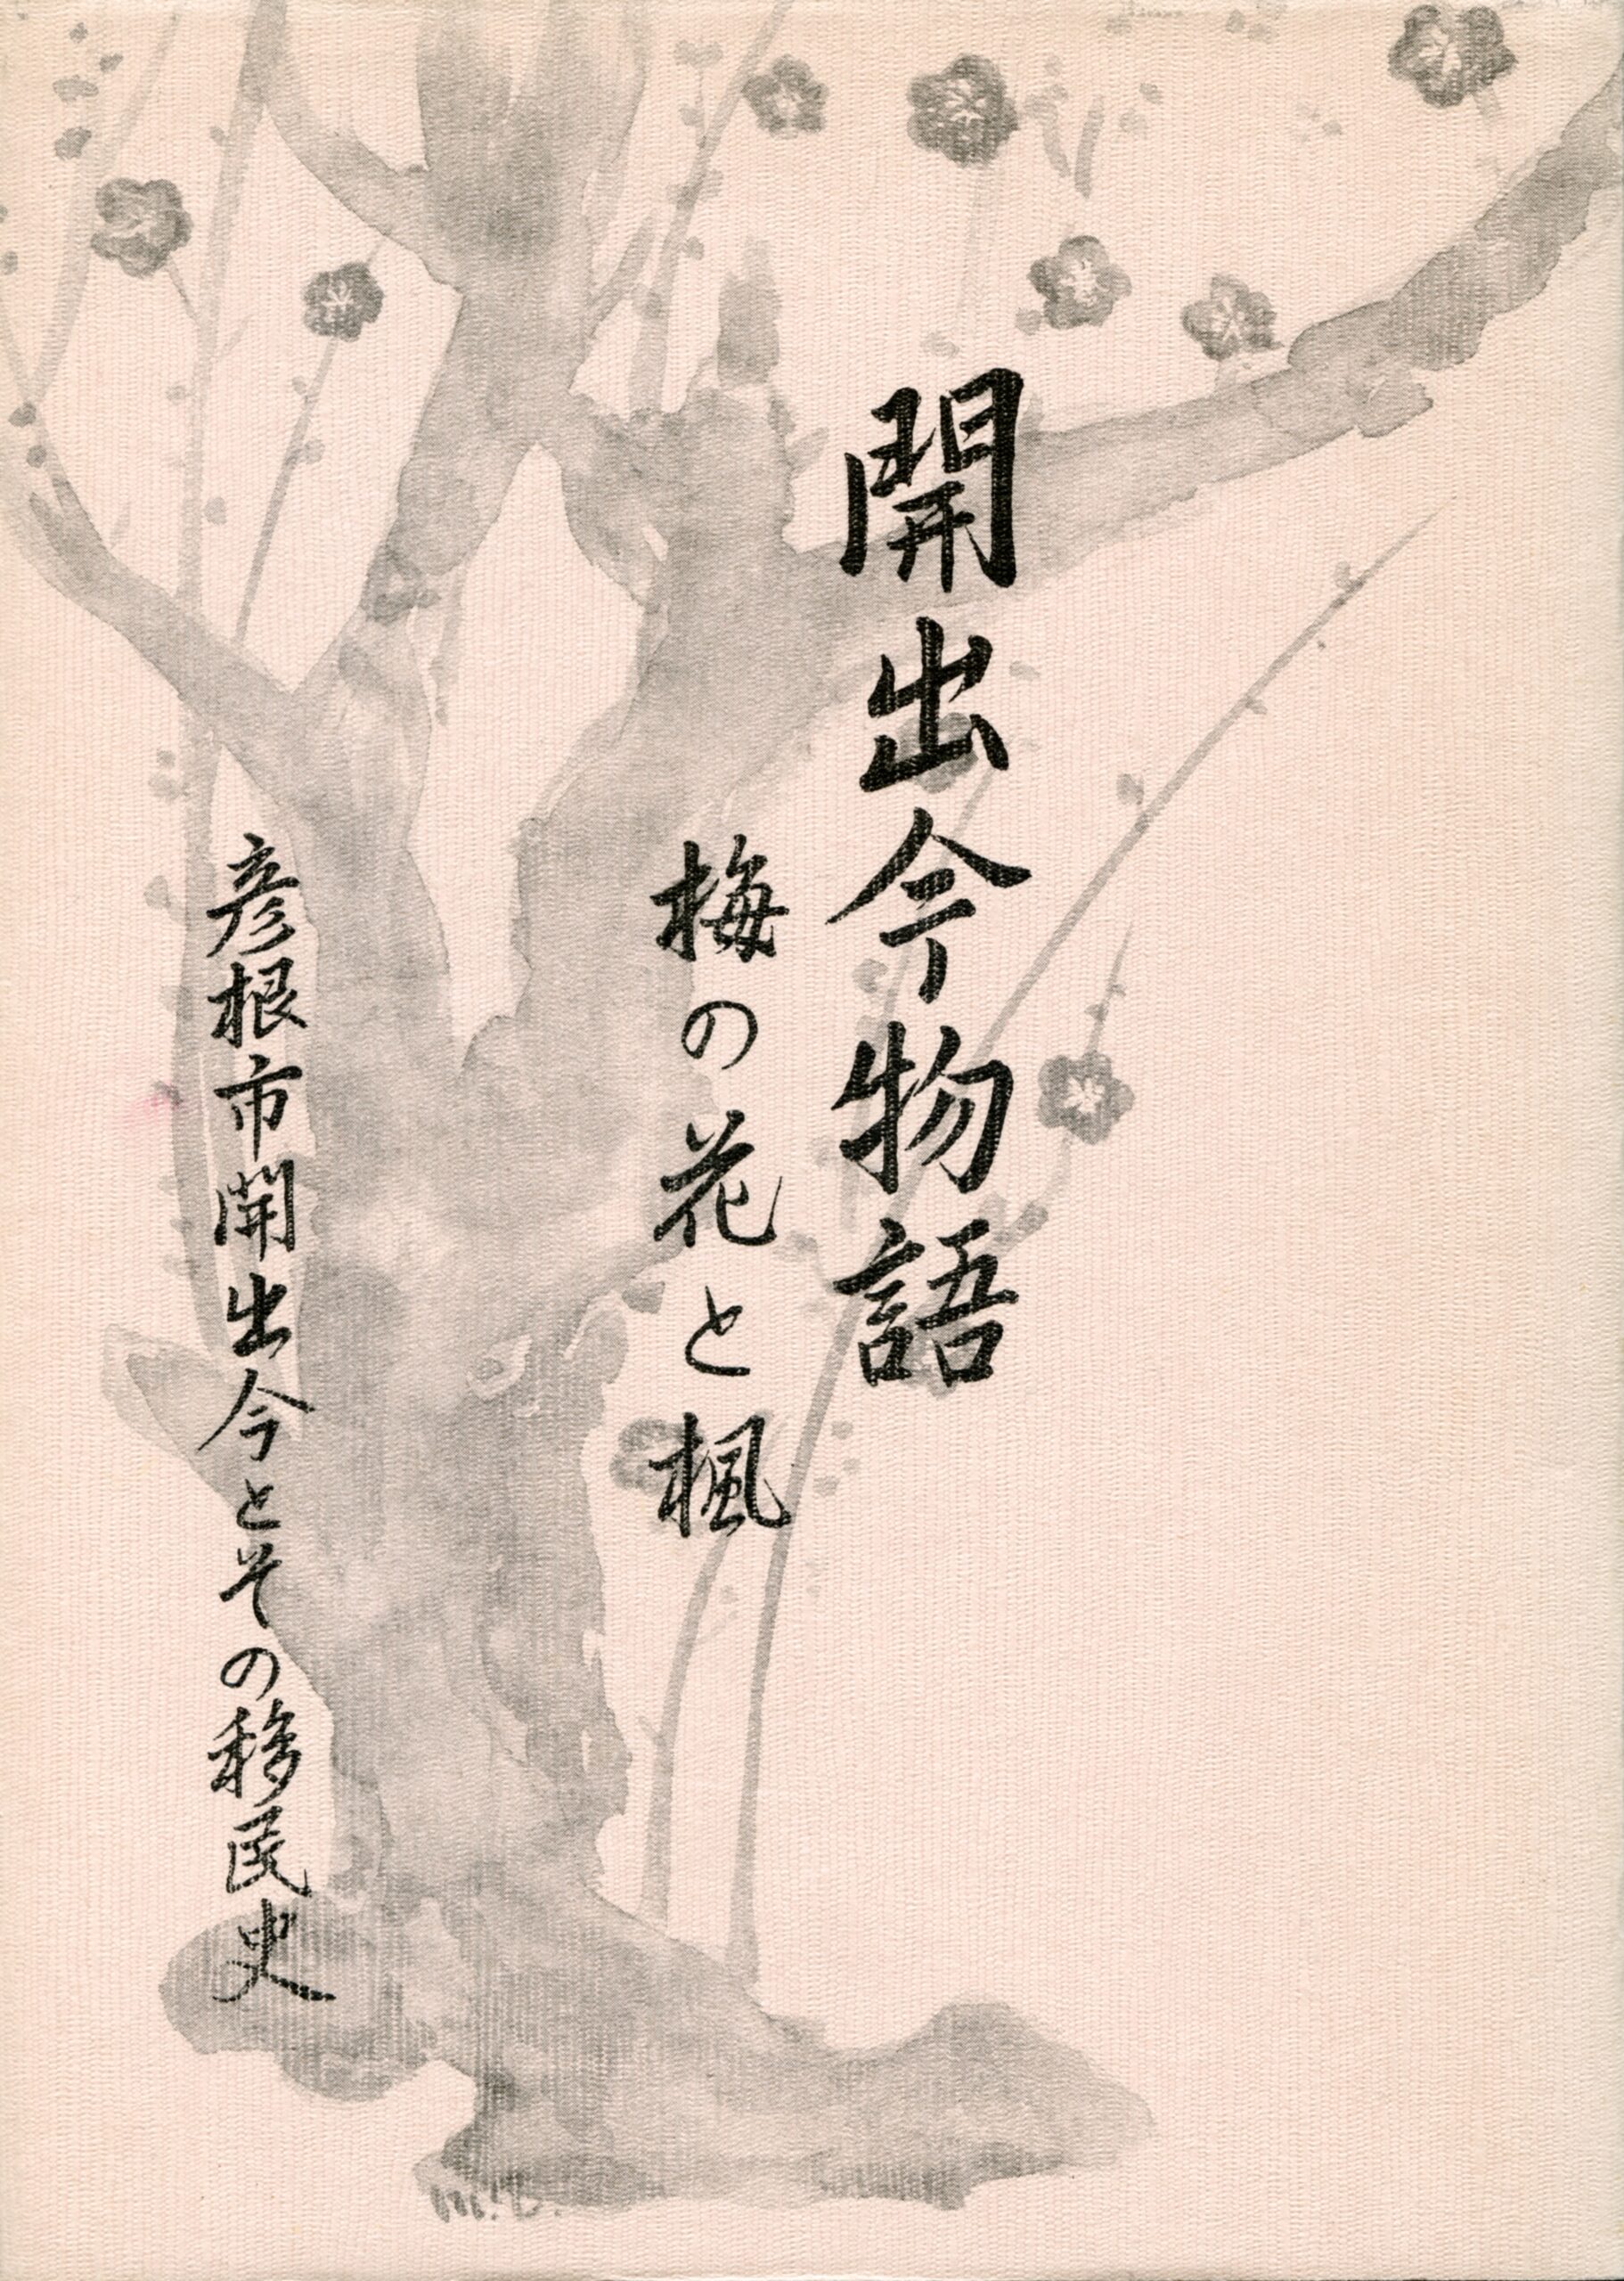 開出今物語
梅の花と楓
彦根市開出今とその移民史